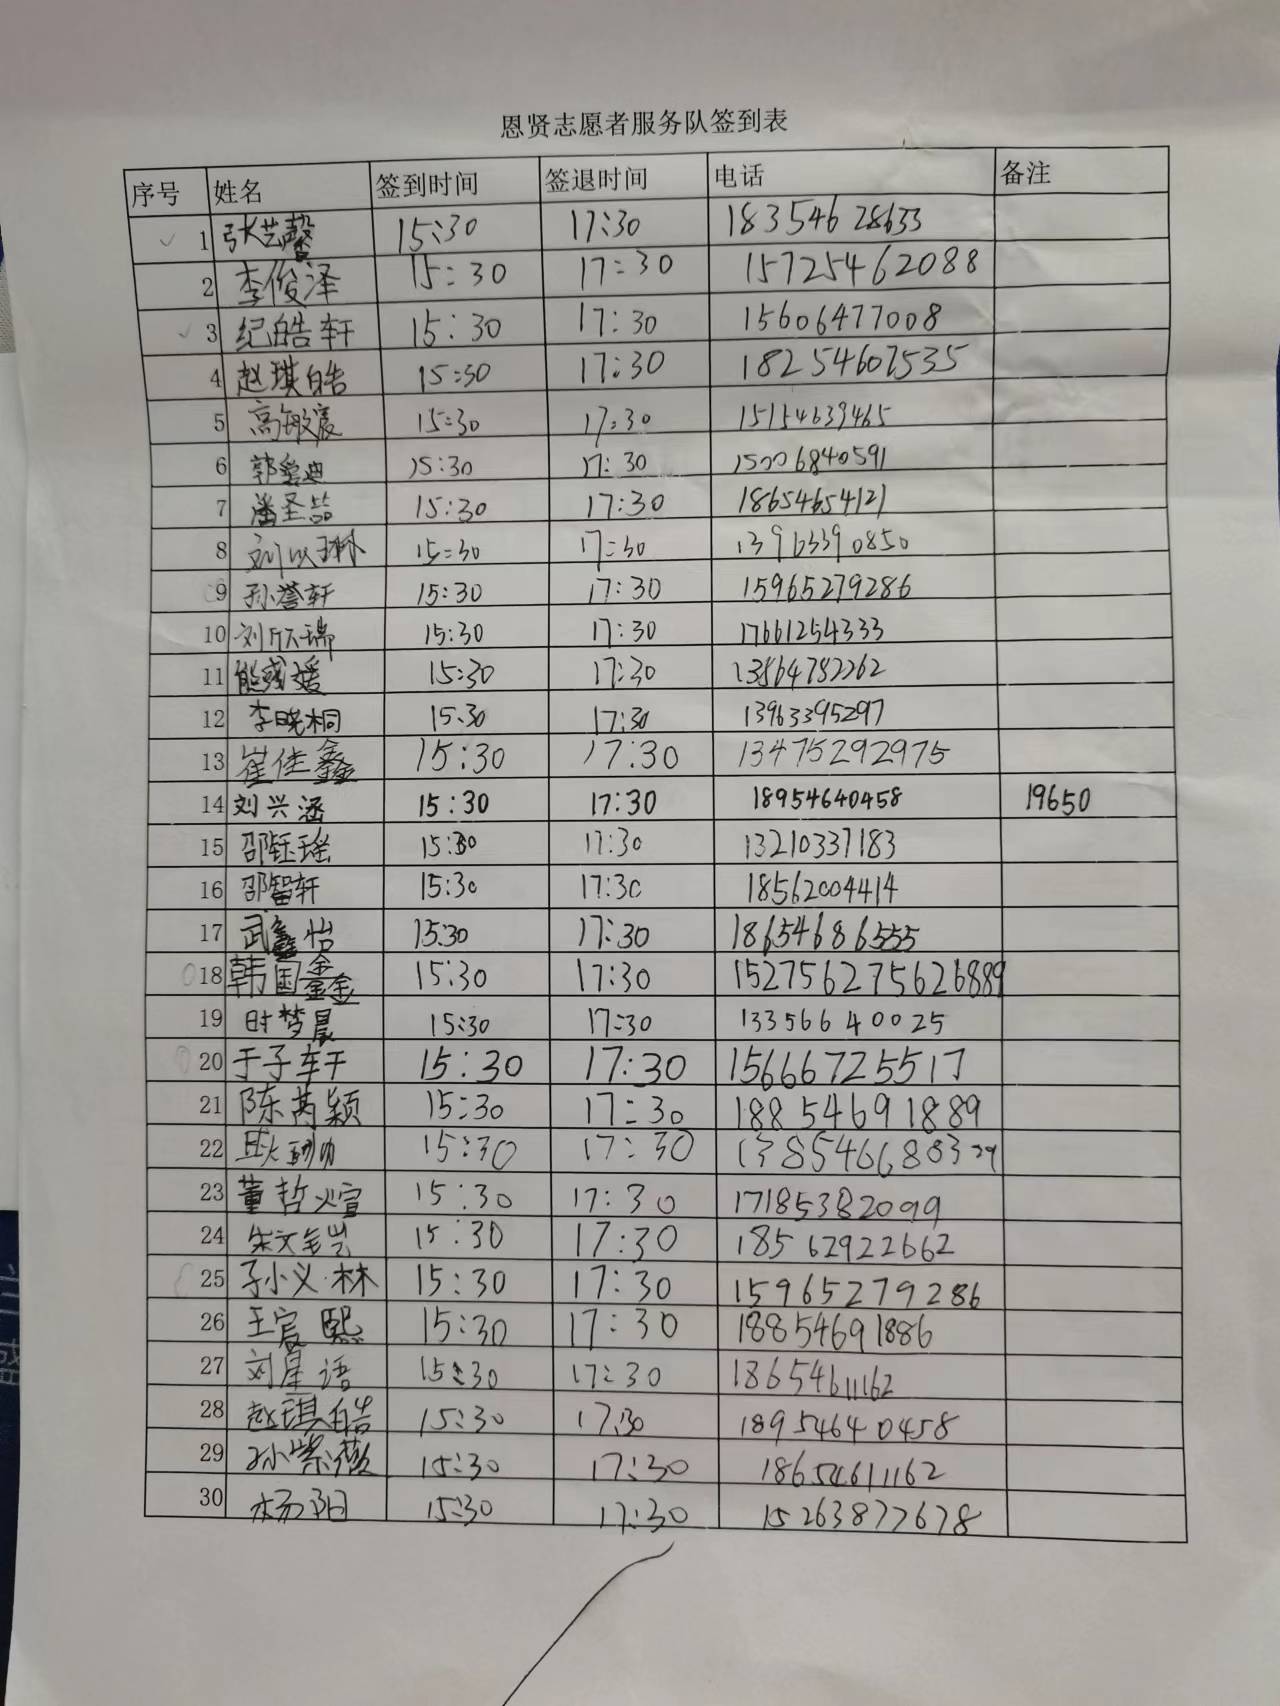 恩贤志愿者服务队签到表
序号 姓名 签到时间 签退时间 电话 备注
1 张艺馨 15:30 17:30 18354628633
2 李俊泽 15:30 17:30 15725462088
3 纪皓轩 15:30 17:30 15606477008
4 赵琪皓 15:30 17:30 18254607535
5 高敏宸 15:30 17:30 15154639465
6 15:30 17:30 15006840591
7 潘圣喆 15:30 17:30 18654654121
8 刘以琳 15:30 17:30 13963390850
9 孙誉轩 15:30 17:30 15965279286
10 刘欣瑞 15:30 17:30 17661254333
11 15:30 17:30 13864782262
12 李晓桐 15:30 17:30 13963395297
13 崔佳鑫 15:30 17:30 13475292975
14 刘兴涵 15:30 17:30 18954640458 19650
15 邵钰瑶 15:30 17:30 13210337183
16 邵智轩 15:30 17:30 18562004414
17 武鑫怡 15:30 17:30 18654686555
18 韩国鑫 15:30 17:30 152756275626889
19 时梦晨 15:30 17:30 13356640025
20 于子轩 15:30 17:30 15666725517
21 陈芮颖 15:30 17:30 18854691889
22 15:30 17:30
23 董哲煊 15:30 17:30 17185382099
24 15:30 17:30 18562922662
25 孙义林 15:30 17:30 15965279286
26 王宸熙 15:30 17:30 18854691886
27 刘星语 15:30 17:30 18654611162
28 赵琪皓 15:30 17:30 18954640458
29 孙紫薇 15:30 17:30 18654611162
30 杨阳 15:30 17:30 15263877678